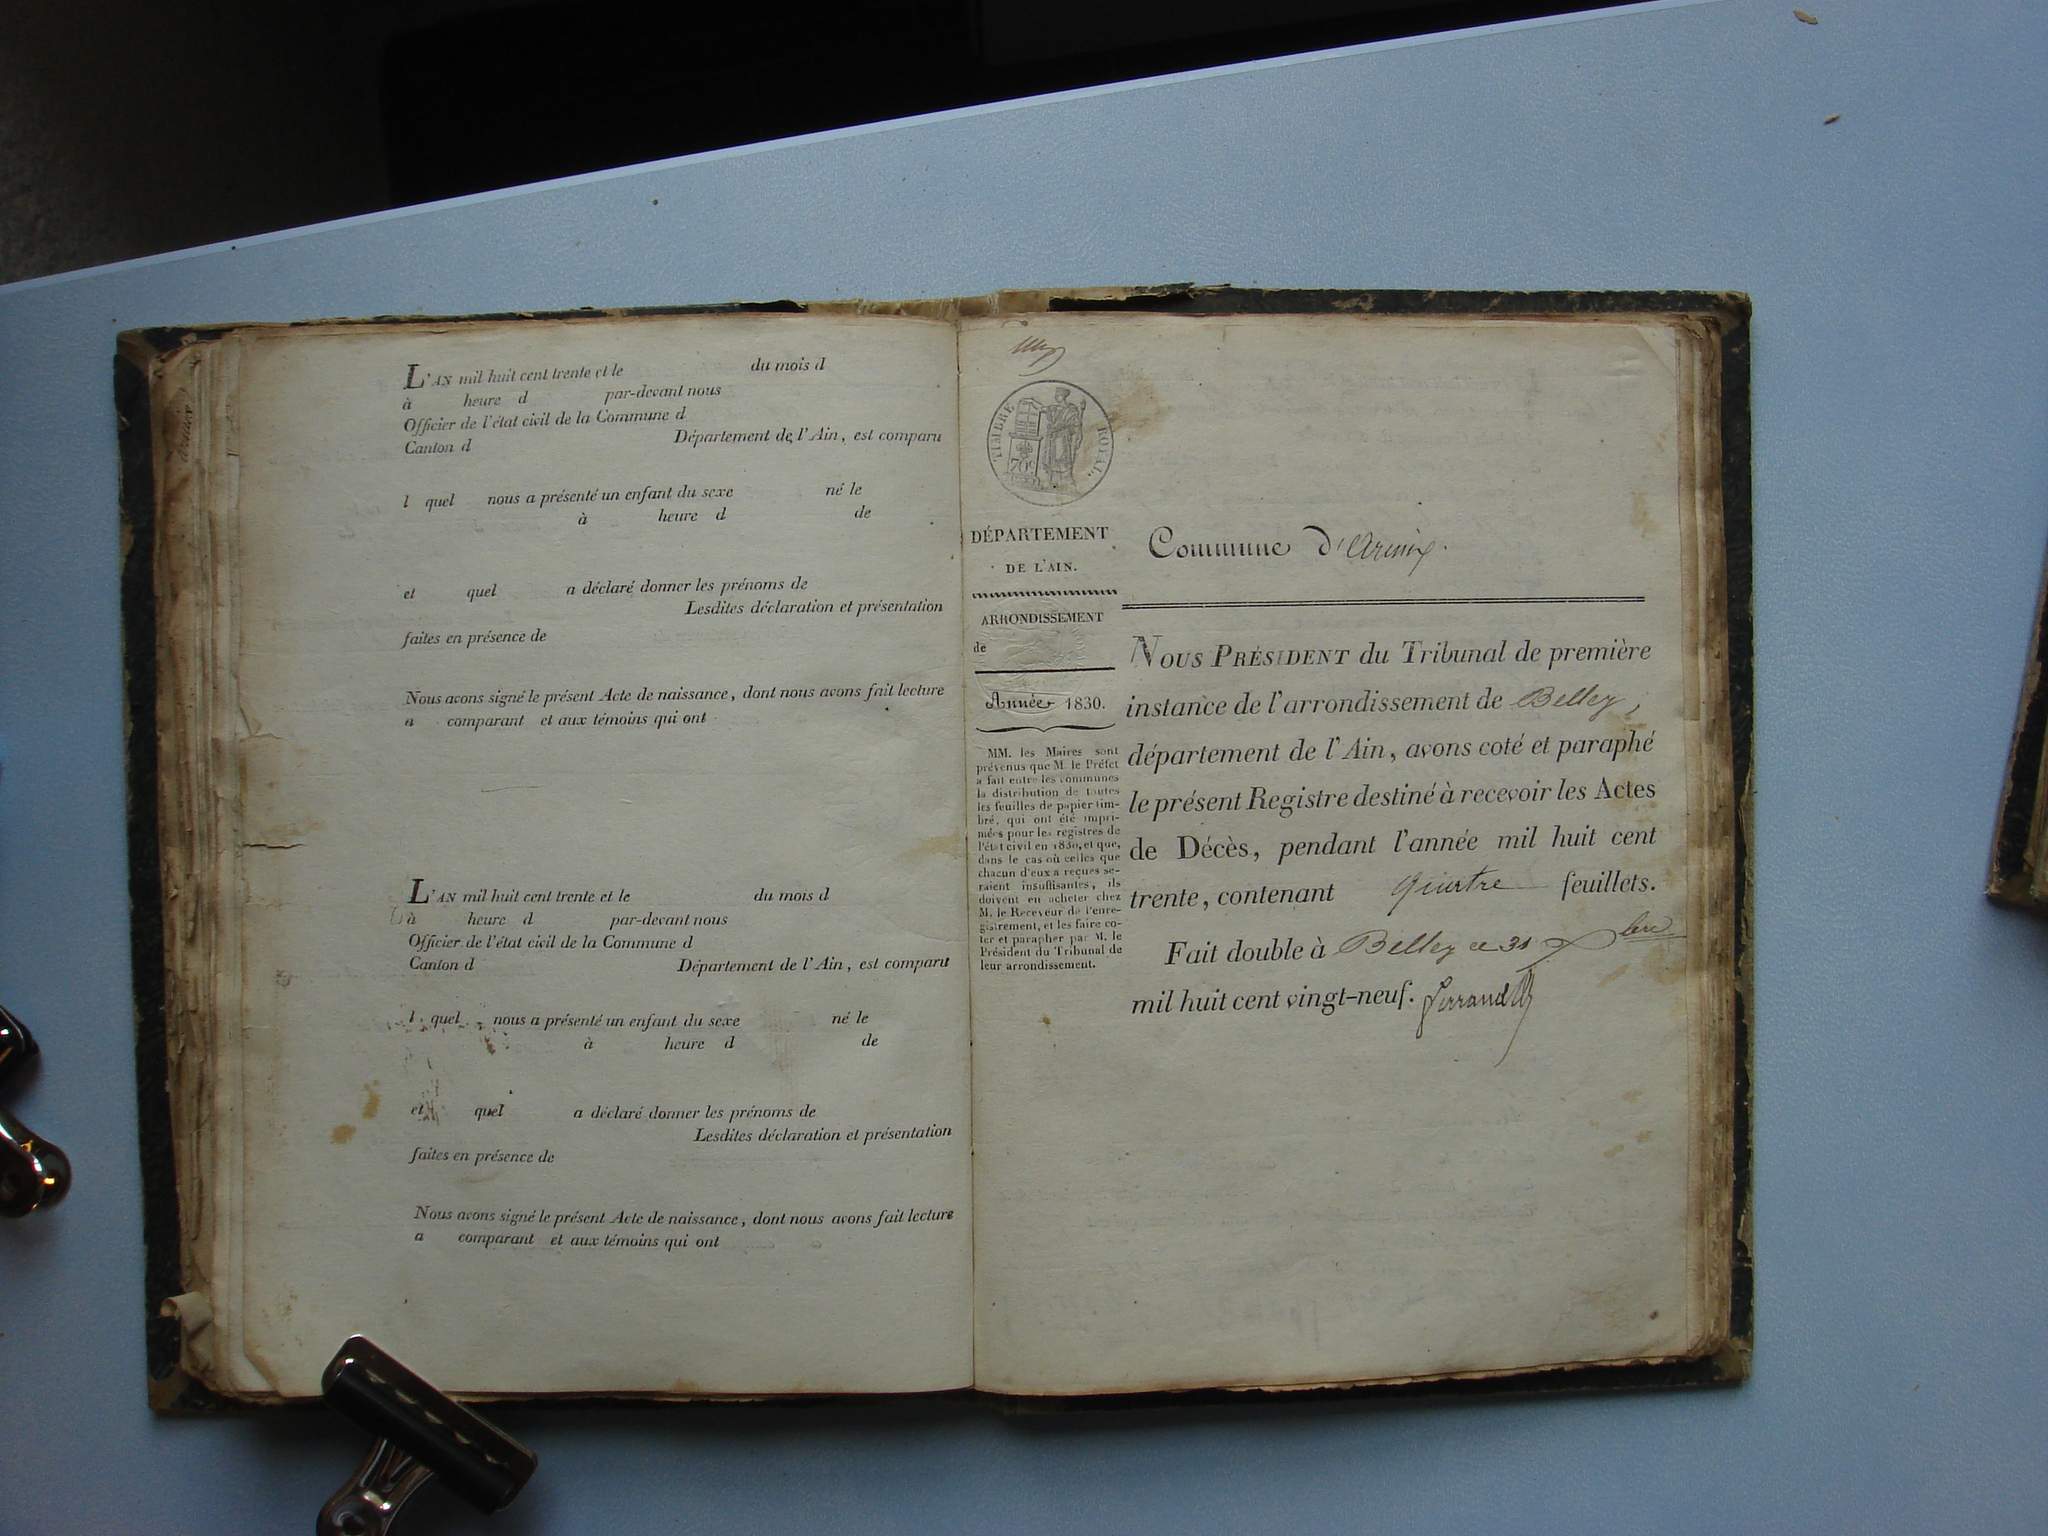 L'AN mil huit cent trente et le du mois d
à heure d par-devant nous
Officier de l'état civil de la Commune d
Canton d Département de l'Ain, est comparu
l quel nous a présenté un enfant du sexe né le
à heure d de
et quel a déclaré donner les prénoms de
Lesdites déclaration et présentation
faites en présence de
Nous avons signé le présent Acte de naissance, dont nous avons fait lecture
a comparant et aux témoins qui ont
L'AN mil huit cent trente et le du mois d
à heure d par-devant nous
Officier de l'état civil de la Commune d
Canton d Département de l'Ain, est comparu
l quel nous a présenté un enfant du sexe né le
à heure d de
et quel a déclaré donner les prénoms de
Lesdites déclaration et présentation
faites en présence de
Nous avons signé le présent Acte de naissance, dont nous avons fait lecture
a comparant et aux témoins qui ont
TIMBRE ROYAL
70c
DÉPARTEMENT
DE L'AIN.
ARRONDISSEMENT
de
Année 1830.
MM. les Maires sont
prévenus que M. le Préfet
a fait entre les communes
la distribution de toutes
les feuilles de papier tim-
bré, qui ont été impri-
mées pour les registres de
l'état civil en 1830, et que,
dans le cas où celles que
chacun d'eux a reçues se-
raient insuffisantes, ils
doivent en acheter chez
M. le Receveur de l'enre-
gistrement, et les faire co-
ter et parapher par M. le
Président du Tribunal de
leur arrondissement.
Commune d'Armix.
NOUS PRÉSIDENT du Tribunal de première
instance de l'arrondissement de Belley,
département de l'Ain, avons coté et paraphé
le présent Registre destiné à recevoir les Actes
de Décès, pendant l'année mil huit cent
trente, contenant quatre feuillets.
Fait double à Belley ce 31 Xbre
mil huit cent vingt-neuf. Ferrand